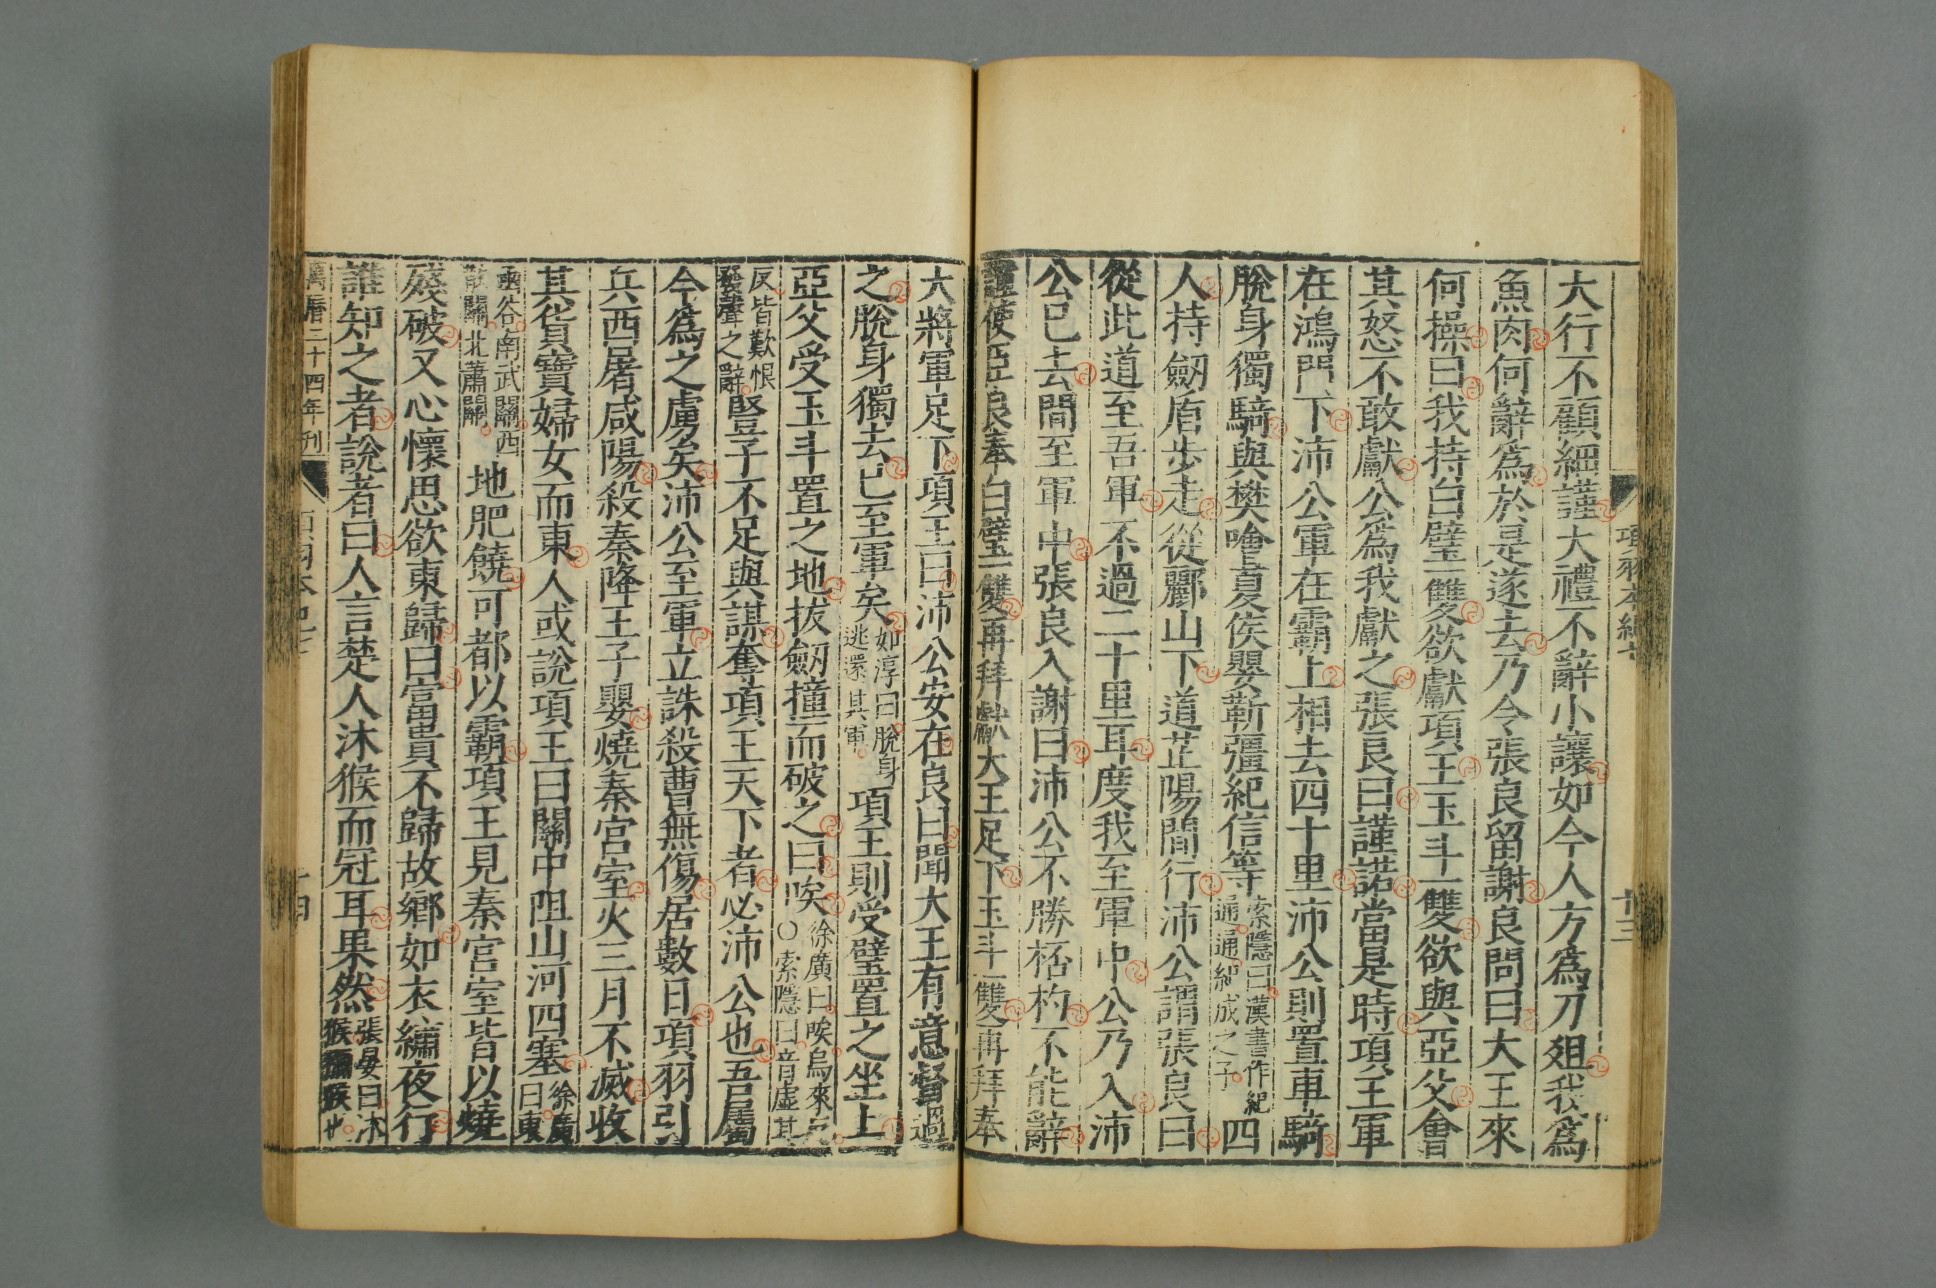 項羽本紀七
大行不顧細謹大禮不辭小讓如今人方爲刀俎我爲
魚肉何辭爲於是遂去乃令張良留謝良問曰大王來
何操曰我持白璧一雙欲獻項王玉斗一雙欲與亞父會
其怒不敢獻公爲我獻之張良曰謹諾當是時項王軍
在鴻門下沛公軍在霸上相去四十里沛公則置車騎
脫身獨騎與樊噲夏侯嬰靳彊紀信等索隱曰漢書作紀通通紀成之子四
人持劒盾步走從酈山下道芷陽間行沛公謂張良曰
從此道至吾軍不過二十里耳度我至軍中公乃入沛
公已去間至軍中張良入謝曰沛公不勝桮杓不能辭
謹使臣良奉白璧一雙再拜獻大王足下玉斗一雙再拜奉
大將軍足下項王曰沛公安在良曰聞大王有意督過
之脫身獨去已至軍矣如淳曰脫身逃還其軍項王則受璧置之坐上
亞父受玉斗置之地拔劒撞而破之曰唉徐廣曰唉烏來反○索隱曰音虛其
反皆歎恨發聲之辭豎子不足與謀奪項王天下者必沛公也吾屬
今爲之虜矣沛公至軍立誅殺曹無傷居數日項羽引
兵西屠咸陽殺秦降王子嬰燒秦宮室火三月不滅收
其貨寶婦女而東人或說項王曰關中阻山河四塞徐廣曰東
函谷南武關西散關北蕭關地肥饒可都以霸項王見秦宮室皆以燒
殘破又心懷思欲東歸曰富貴不歸故鄉如衣繡夜行
誰知之者說者曰人言楚人沐猴而冠耳果然張晏曰沐猴獼猴也
萬曆二十四年刊